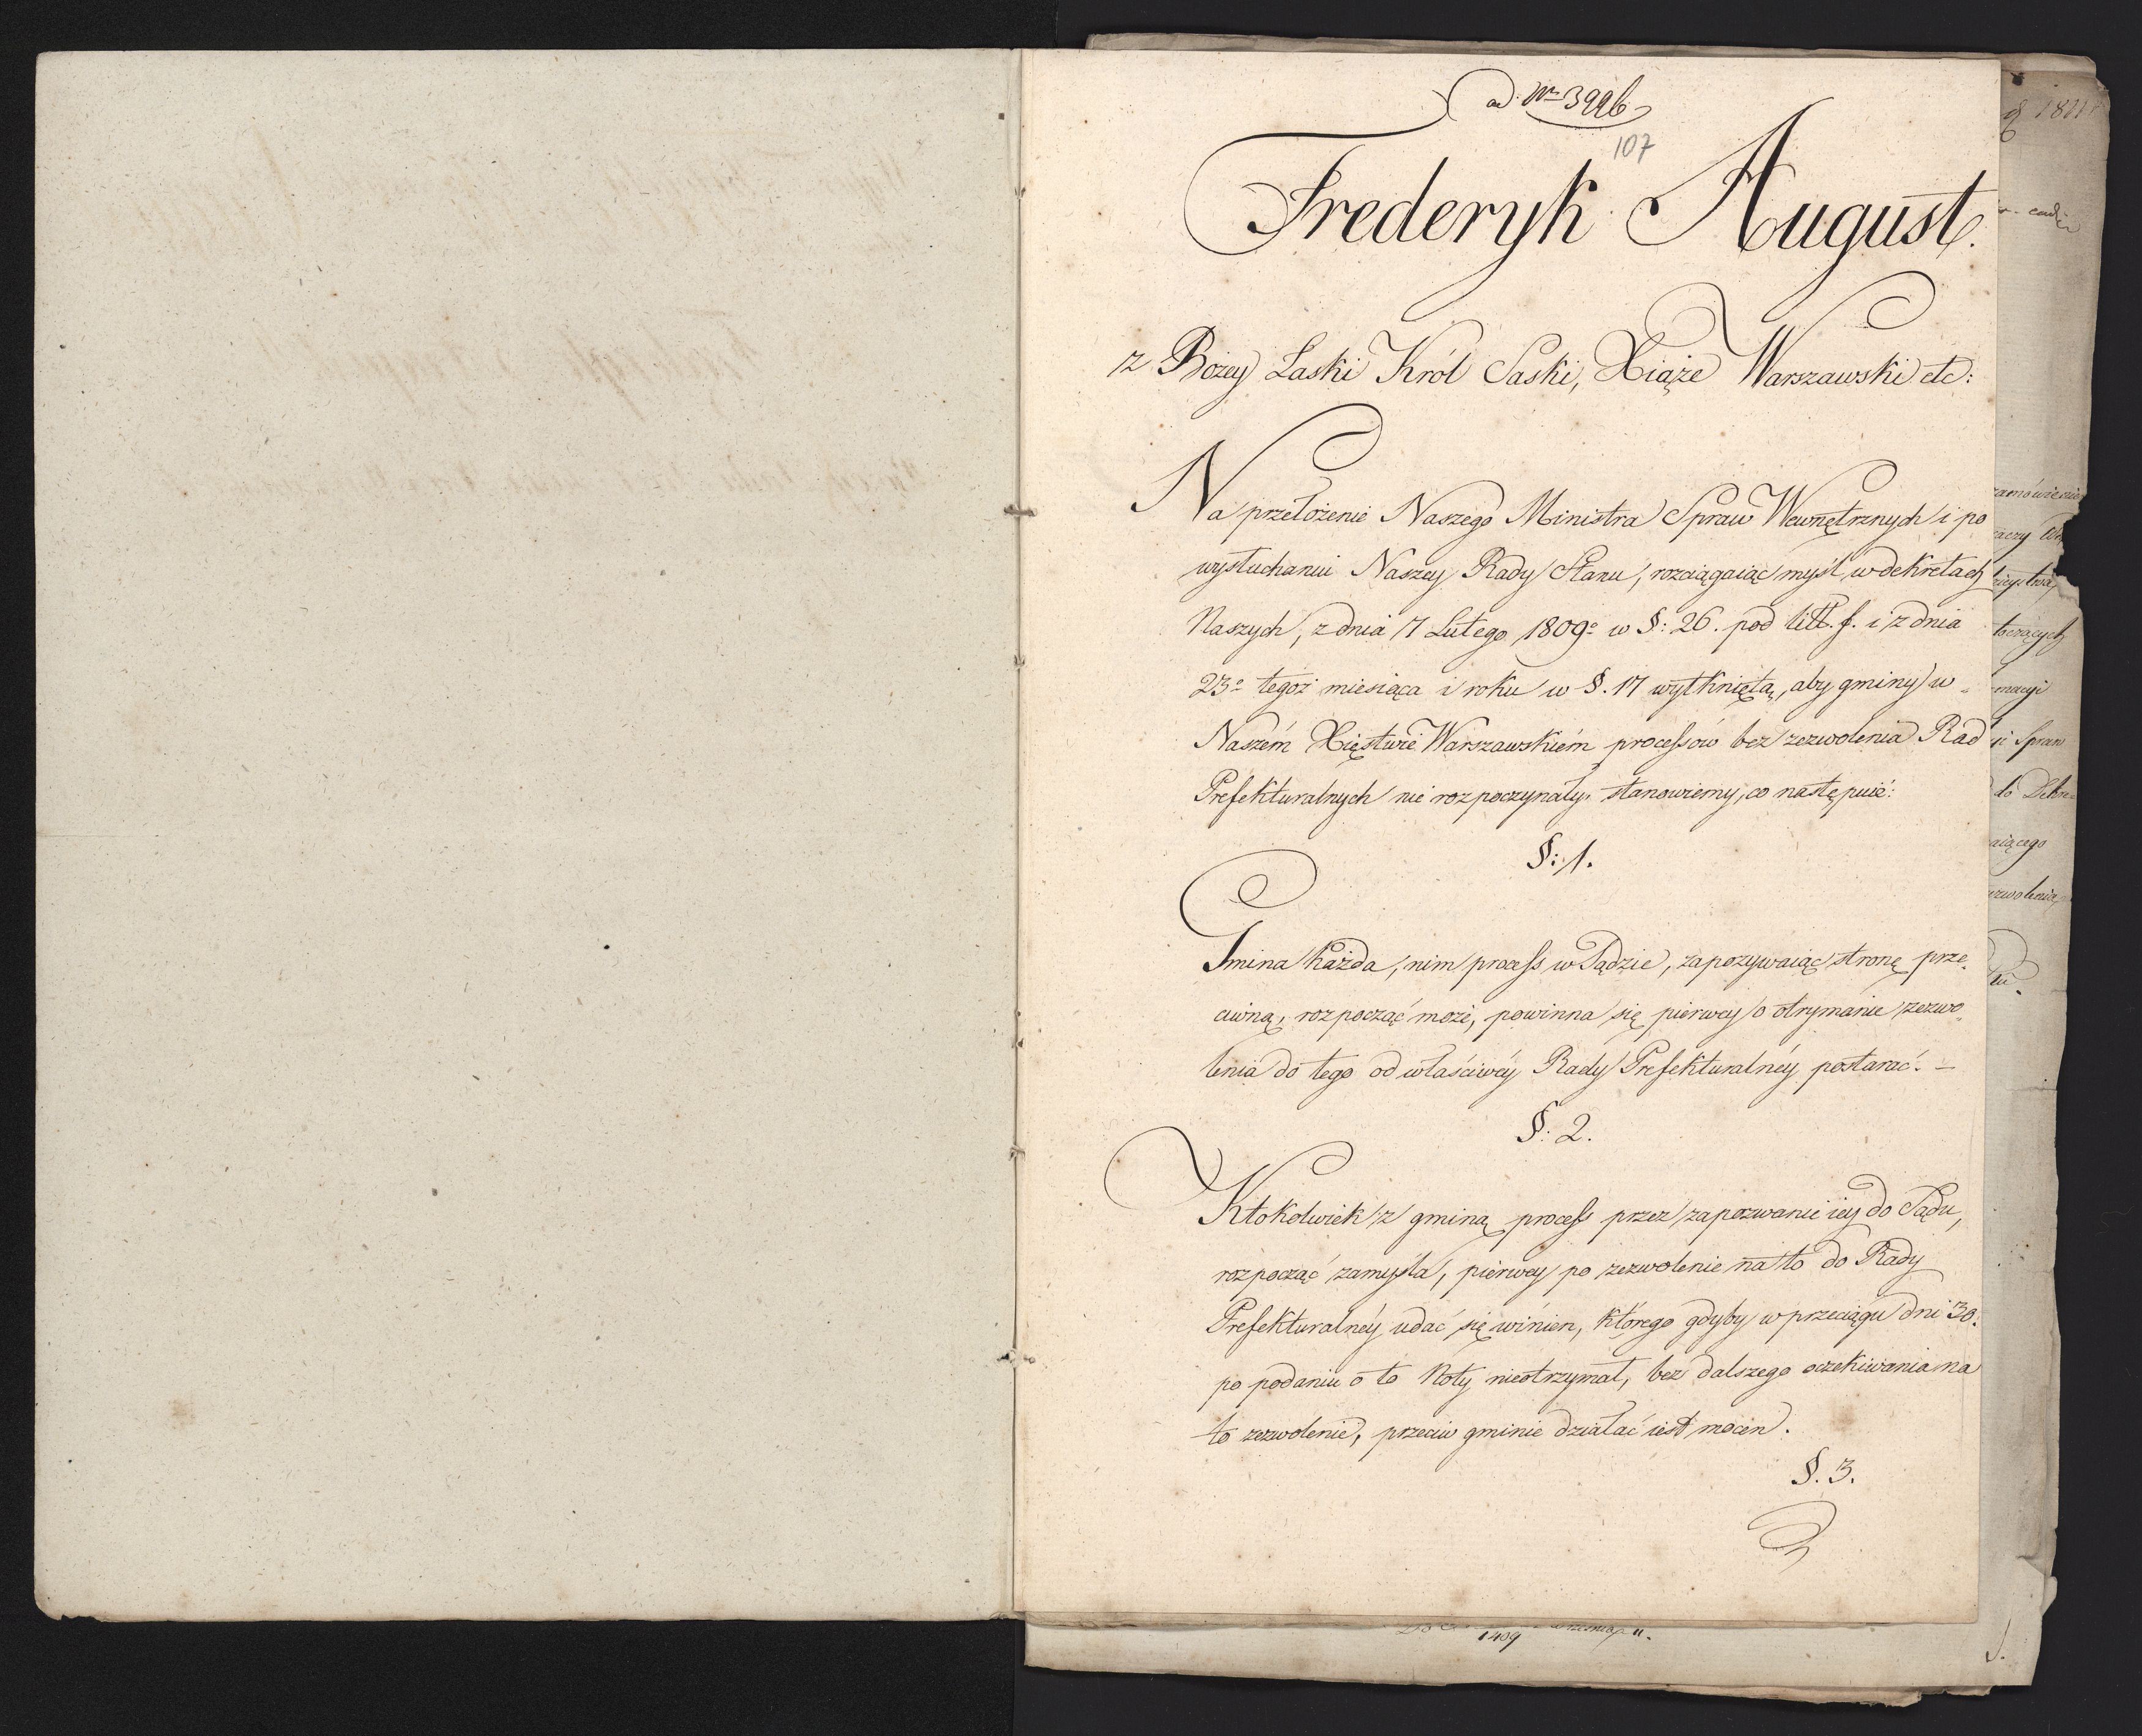 ad Nrm 3996
107
Frederyk August.
z Bożey Łaski Król Saski, Xiąże Warszawski etc:
Na przełożenie Naszego Ministra Spraw Wewnętrznych i po
wysłuchaniu Naszey Rady Stanu, rozciągaiąc myśl w dekretach
Naszych, z dnia 7 Lutego 1809o w §: 26. pod litt. f. i z dnia
23o tegoż miesiąca i roku w §. 17 wytkniętą, aby gminy w
Naszém Xięstwie Warszawskiém processów bez zezwolenia Rad
Prefekturalnych nie rozpoczynały, stanowiemy, co następuie:
§: 1.
Gmina każda, nim process w Sądzie, zapozywaiąc stronę prze-
ciwną, rozpocząć może, powinna się pierwey o otrymanie zezwo-
lenia do tego od właściwéy Rady Prefekturalnéy postarać. –
§: 2.
Ktokolwiek z gminą process przez zapozwanie iéy do Sądu,
rozpocząć zamyśla, pierwey po zezwolenie na to do Rady
Prefekturalnéy udać się winien, którego gdyby w przeciągu dni 30.
po podaniu o to Noty nieotrzymał, bez dalszego oczekiwania na
to zezwolenie, przeciw gminie działać iest mocen.
§. 3.
1811
zamówienie
toczących
macyi
yi Spraw
do Dekre-
aiącego
ezwolenia
1409